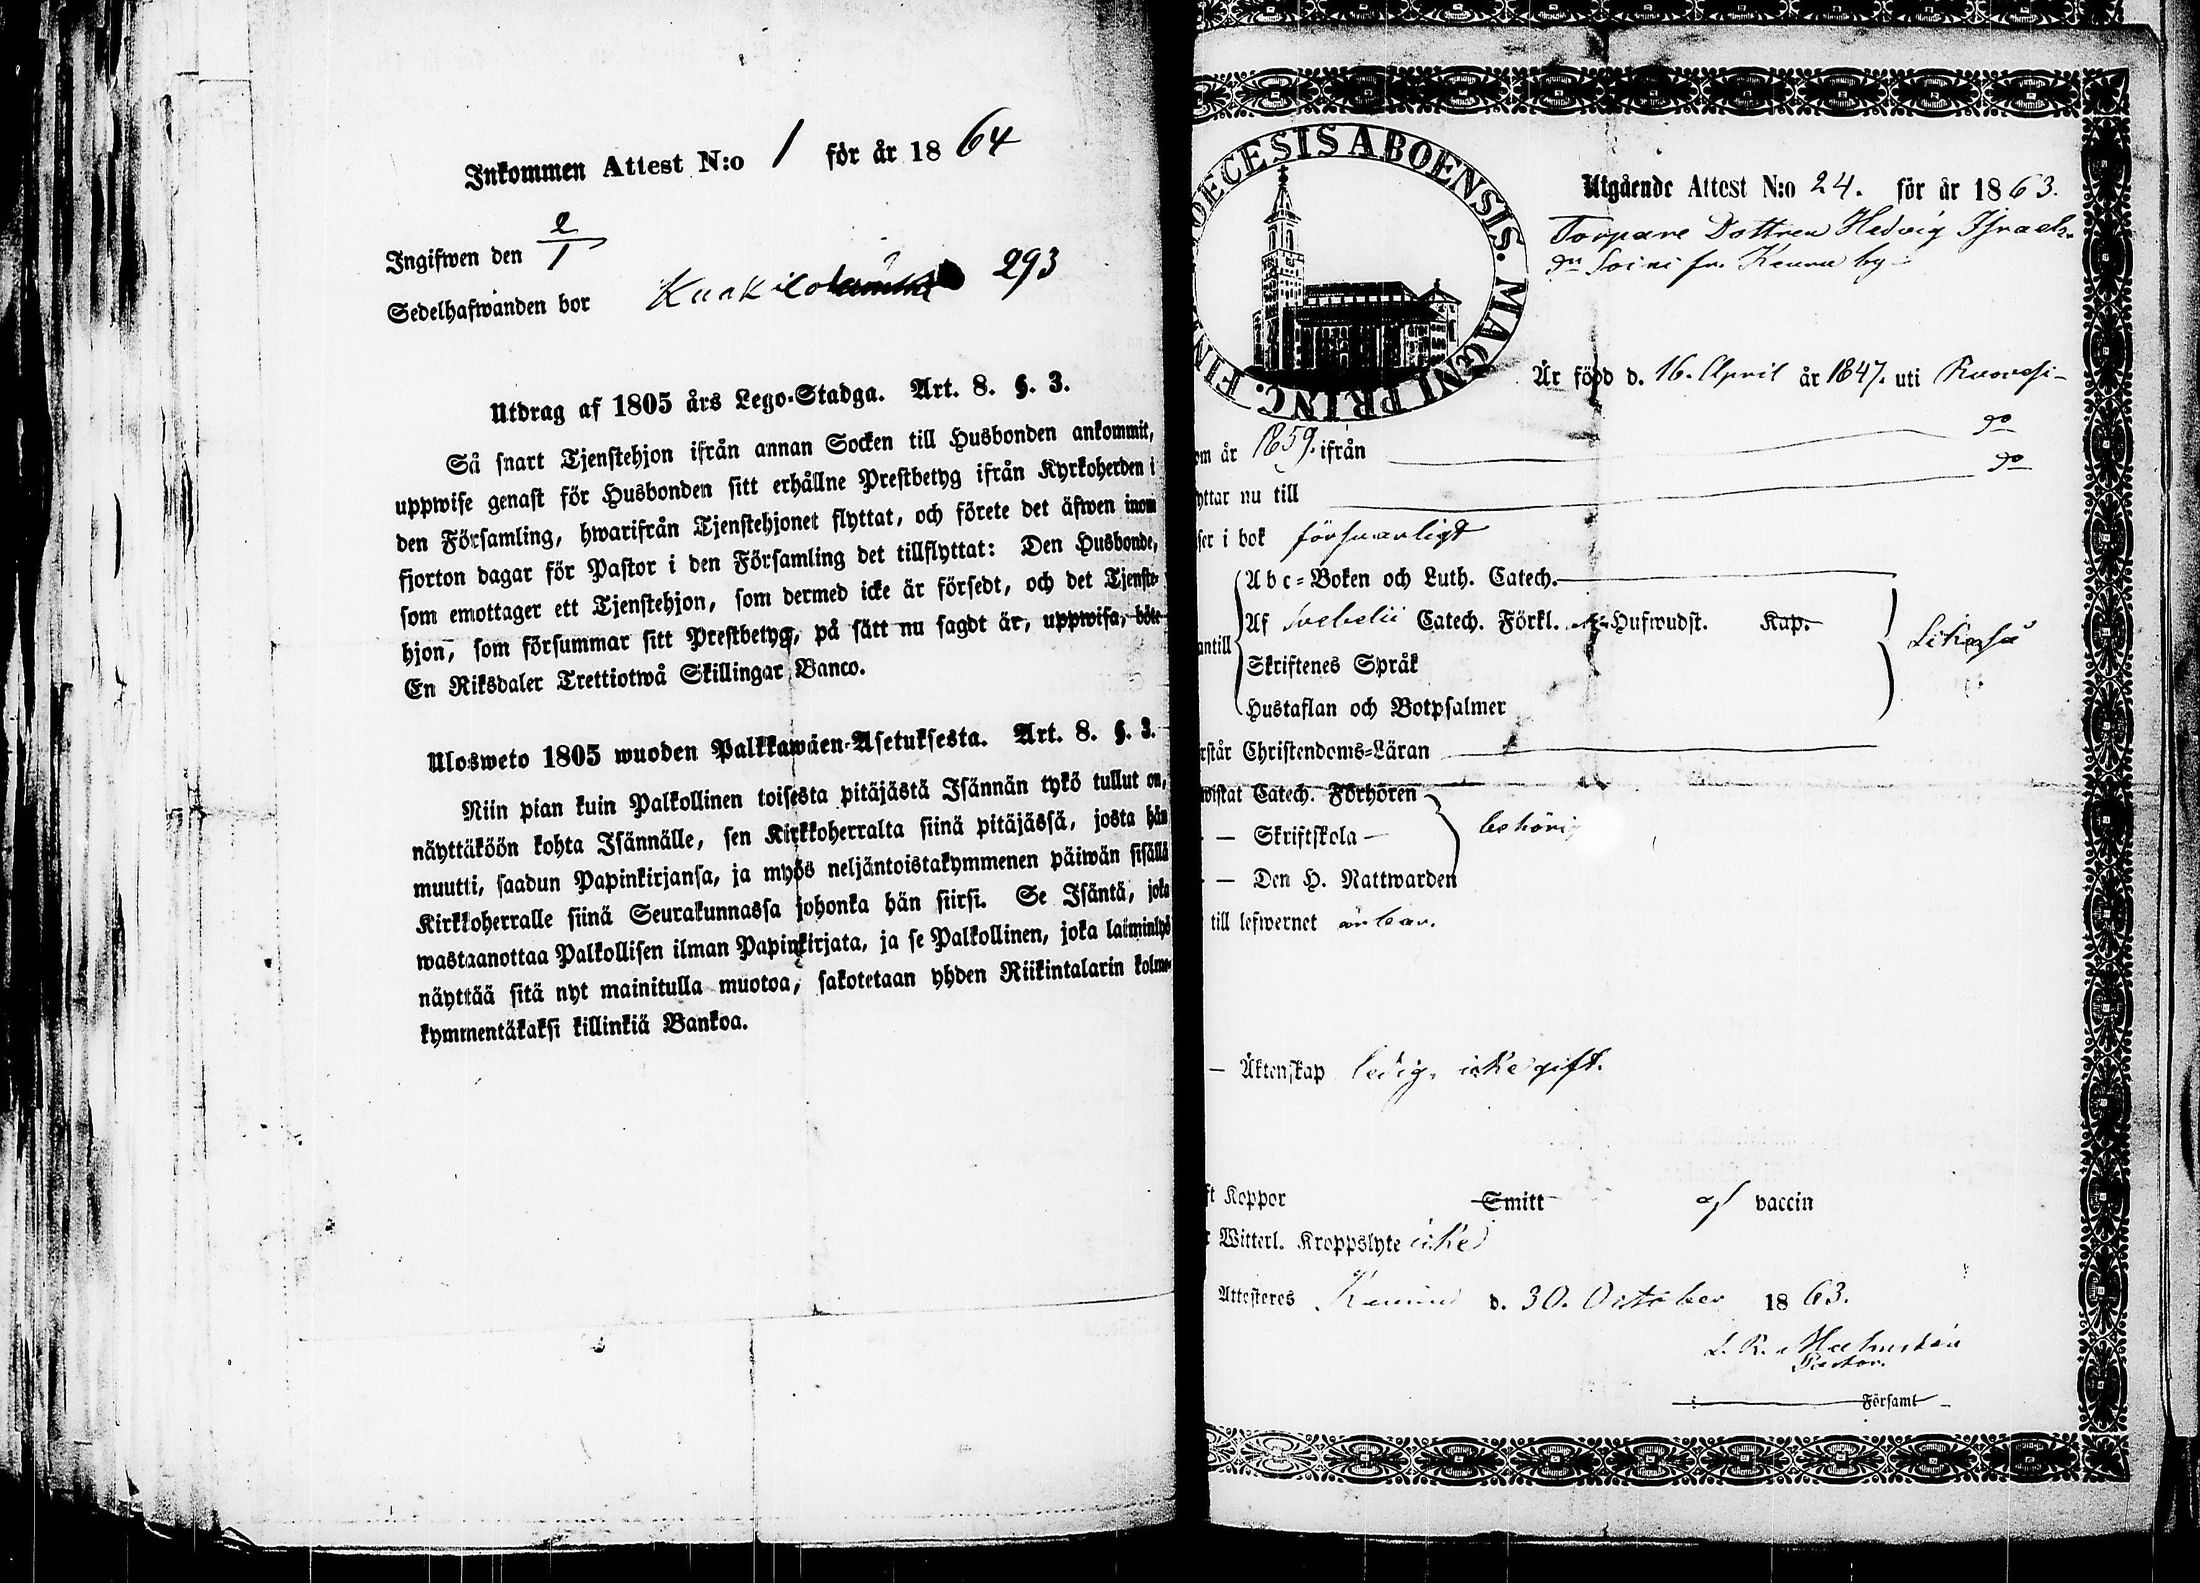 Inkommen Attest N:o 1 för år 1864
Ingifwen den 2/1
Sedelhafwanden bor 293
Utdrag af 1805 års Lego-Stadga. Art. 8. §. 3.
Så snart Tjenstehjon ifrån annan Socken till Husbonden ankommit,
uppwise genast för Husbonden sitt erhållne Prestbetyg ifrån Kyrkoherden i
den Församling, hwarifrån Tjenstehjonet flyttat, och förete det äfwen inom
fjorton dagar för Pastor i den Församling det tillflyttat: Den Husbonde,
som emottager ett Tjenstehjon, som dermed icke är försedt, och det Tjenste-
hjon, som försummar sitt Prestbetyg, på sätt nu sagdt är, uppwisa, böte
En Riksdaler Trettiotwå Skillingar Banco.
Ulosweto 1805 wuoden Palkkawäen-Asetuksesta. Art. 8. §. 3.
Niin pian kuin Palkollinen toisesta pitäjästä Isännän tykö tullut on,
näyttäköön kohta Isännälle, sen Kirkkoherralta siinä pitäjässä, josta hän
muutti, saadun Papinkirjansa, ja myös neljäntoistakymmenen päiwän sisällä
Kirkkoherralle siinä Seurakunnassa johonka hän siirsi. Se Isäntä, joka
wastaanottaa Palkollisen ilman Papinkirjata, ja se Palkollinen, joka laiminlyö
näyttää sitä nyt mainitulla muotoa, sakotetaan yhden Riikintalarin kolme-
kymmentäkaksi killinkiä Bankoa.
OECESIS ABOENSIS. MAGNI PRINC. FIN
Utgående Attest N:o 24. för år 1863.
Torpare Dottren Hedvig Israels
dr Soini fr. Keuru by
Är född d. 16. April år 1847. uti Ruovesi
om år 1859. ifrån do
yttar nu till do
ser i bok försvarligt
Abc-Boken och Luth. Catech.
Af Svebelii Catech. Förkl. Hufwudst. Kap.
antill Skriftenes Språk Likaså
Hustaflan och Botpsalmer
rstår Christendoms-Läran
wistat Catech. Förhören
— Skriftskola — behörig
— Den H. Nattwarden
till lefwernet ärbar.
— Äktenskap ledig, icke gift.
ft Koppor Smitt af vaccin
r Witterl. Kroppslyte icke
Attesteres Keuru d. 30. October 1863.
Pastor.
Församl